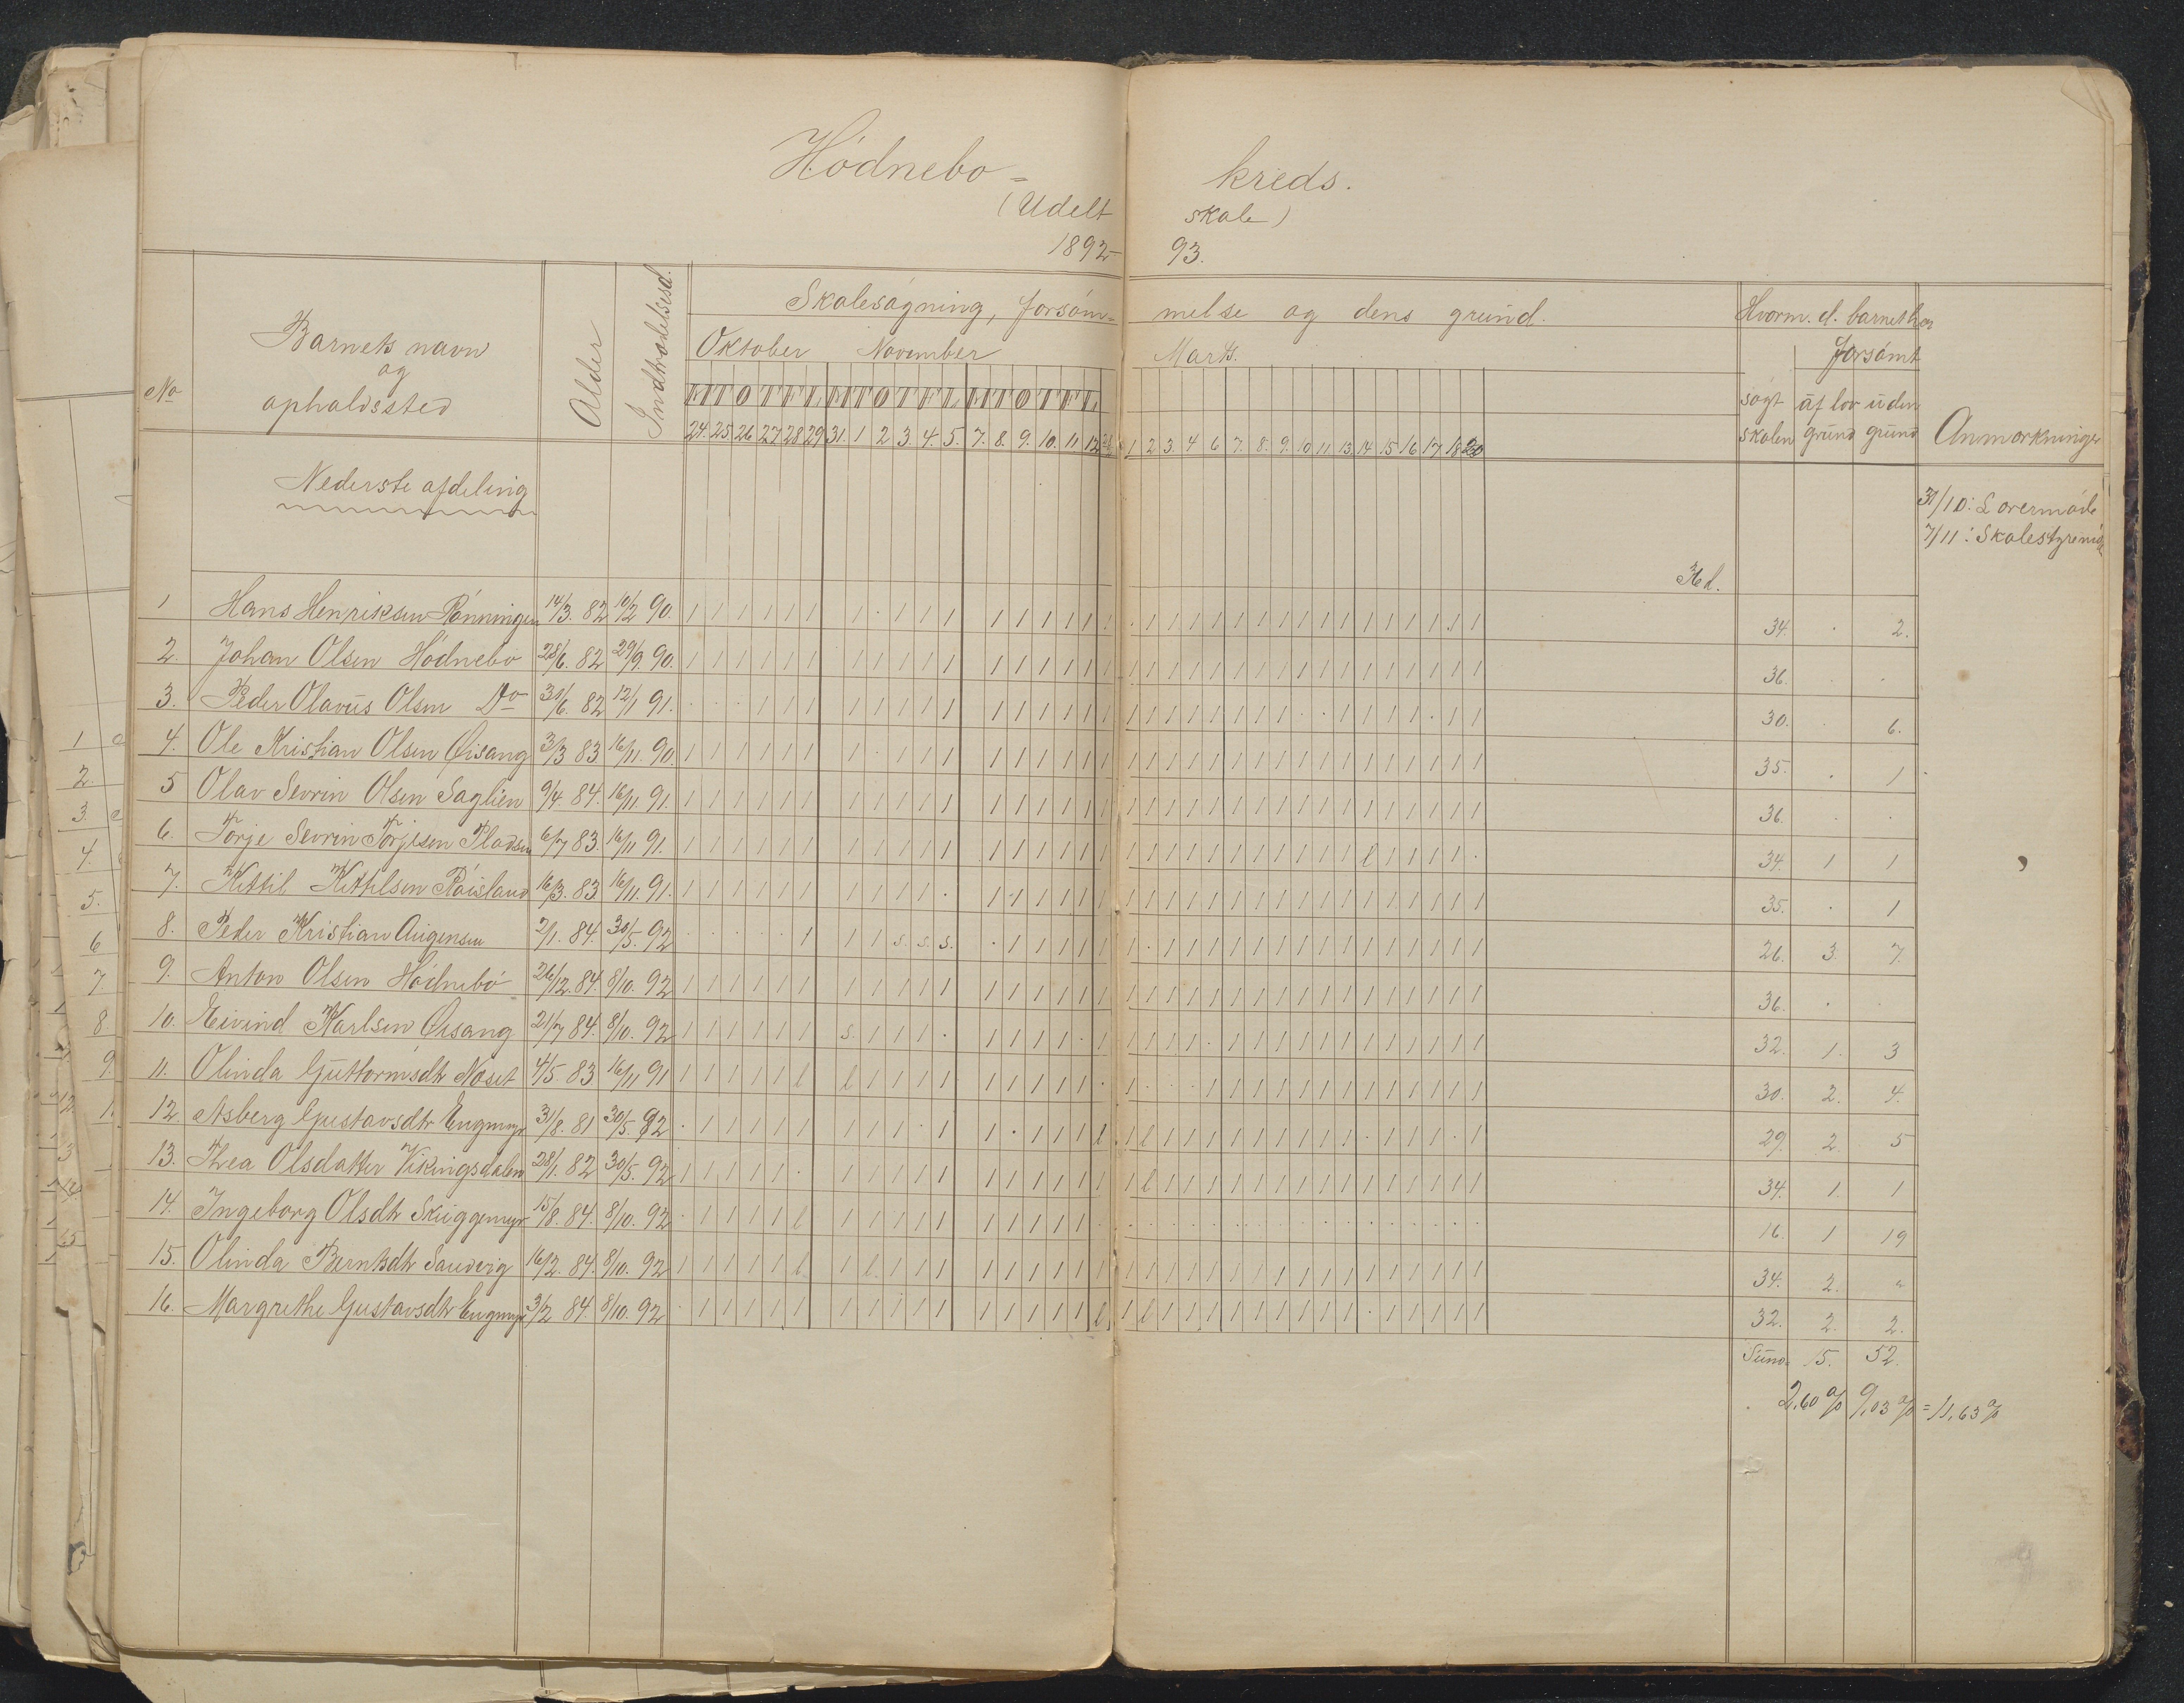 Hödnebo = kreds.
(Udelt skole)
1892 - 93.
No
Barnets navn og opholdssted
Alder
Indtrædelsesd.
Skolesögning, forsöm= melse og dens grund.
Hvorm. d. barnet har
Oktober November Marts.
forsömt
M T O T F L M T O T F L M T O T F L
24. 25 26 27 28 29 31. 1 2 3. 4. 5. 7. 8. 9. 10. 11. 12 1 2 3. 4 6 7. 8. 9. 10 11 13. 14 15 16 17 18 20
sögt skolen
af lov grund
uden grund
Anmærkninger
Nederste afdeling
31/10: Lovermöde
7/11: Skolestyremöde
36 d.
1 Hans Henriksen Rönningen 14/3. 82 10/2 90. 34. . 2.
2. Johan Olsen Hödnebö 28/6. 82 29/9. 90. 36. . .
3. Peder Olavus Olsen Do 31/6. 82 12/1 91. 30. . 6.
4. Ole Kristian Olsen Öisang 3/3 83 16/11. 90. 35. . 1
5 Olav Sevrin Olsen Saglien 9/4. 84. 16/11. 91. 36. . .
6. Torje Sevrin Torjesen Pladsen 6/7 83. 16/11 91. 34. 1 1
7. Kittil Kittilsen Röisland 16/3. 83. 16/11. 91. 35. . 1
8. Peder Kristian Augensen 2/1. 84. 30/5. 92 26. 3. 7.
9. Anton Olsen Hödnebö 26/12. 84. 8/10. 92 36. . .
10. Eivind Karlsen Öisang 21/7 84. 8/10. 92 32. 1. 3
11. Olinda Guttormsdtr Næset 4/5 83 16/11 91 30. 2. 4.
12. Asberg Gustavsdtr Engmyr 31/8. 81 30/5. 92 29. 2. 5
13. Thea Olsdatter Vikingsdalen 28/1. 82 30/5. 92 34. 1. 1
14. Ingeborg Olsdtr Skuggemyr 15/8. 84. 8/10. 92 16. 1 19
15. Olinda Berntsdtr Sandvig 16/2. 84. 8/10. 92 34. 2. "
16. Margrethe Gustavsdtr Engmyr 3/2 84. 8/10. 92 32. 2. 2.
Sum. 15. 52.
2,60 % 9,03 % = 11,63 %